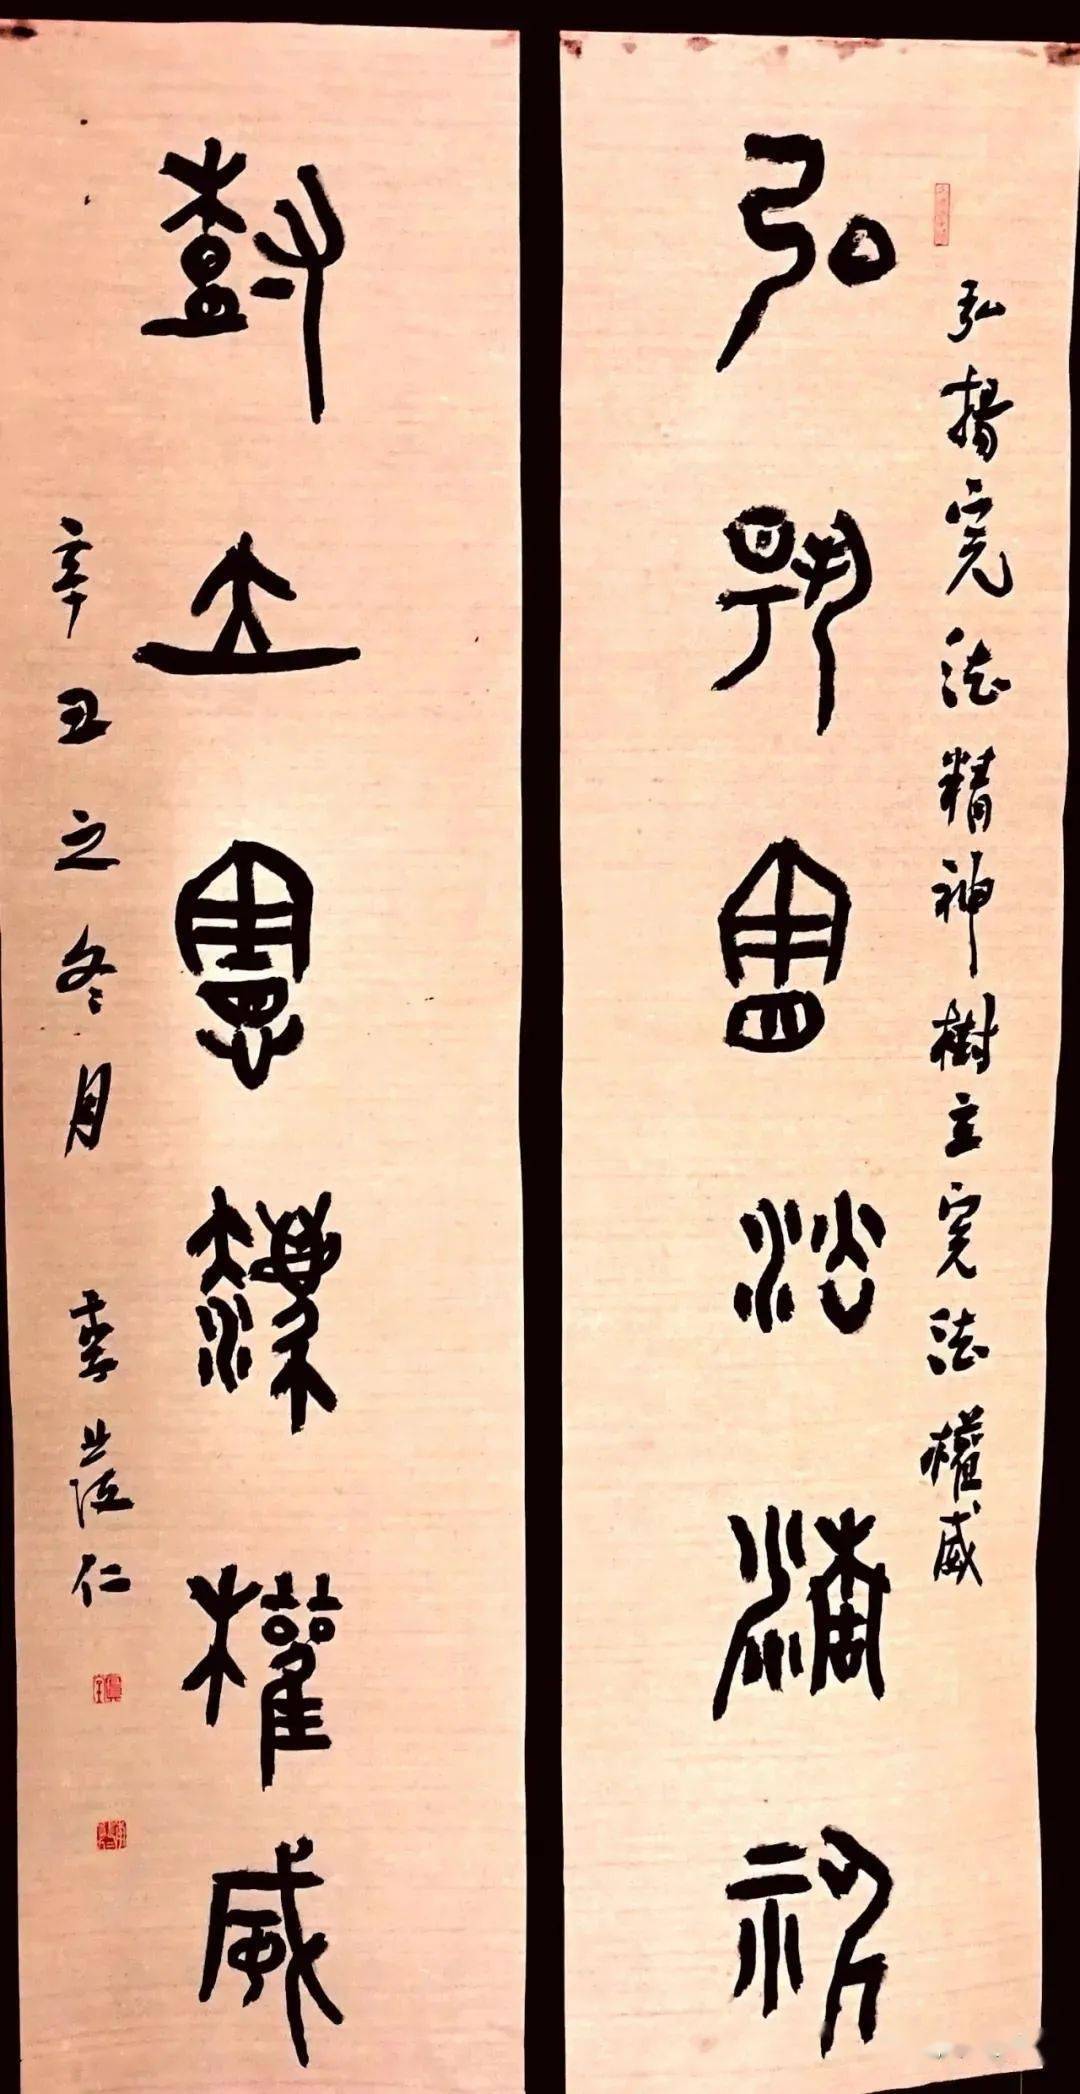 弘揚憲法精神樹立憲法權威
弘揚憲法精神
樹立憲法權威
辛丑之冬月